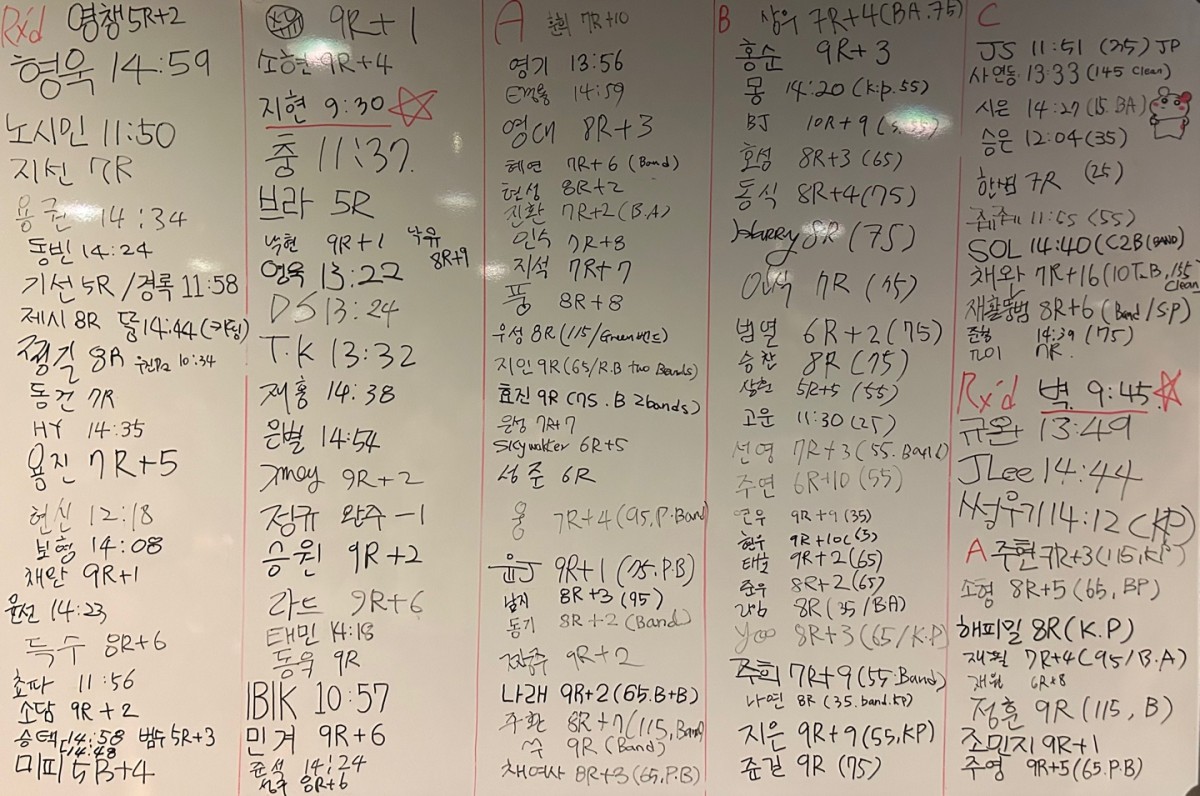 Rx'd 영챙 5R+2
형욱 14:59
노시민 11:50
지선 7R
용권 14:34
동빈 14:24
기선 5R / 경록 11:58
제시 8R 14:44
8R 10:34
동건 7R
HY 14:35
용진 7R+5
현신 12:18
보형 14:08
채완 9R+1
윤선 14:23
득수 8R+6
초파 11:56
소담 9R+2
승택 14:58 범수 5R+3
14:48
미피 5R+4
9R+1
소현 9R+4
지현 9:30 ☆
중 11:37
브라 5R
낙현 9R+1 낙유 8R+9
영욱 13:22
DS 13:24
T.K 13:32
재홍 14:38
은별 14:54
Jmay 9R+2
정규 완주-1
승원 9R+2
라드 9R+6
태민 14:18
동욱 9R
IBIK 10:57
민겨 9R+6
준석 14:24
성구 8R+6
A 훈희 7R+10
영기 13:56
14:59
영대 8R+3
혜연 7R+6 (Band)
현성 8R+2
진환 7R+2 (B.A)
인수 7R+8
지석 7R+7
풍 8R+8
우성 8R (115/Green밴드)
지인 9R (65/R.B two Bands)
효진 9R (75.B 2bands)
은성 7R+7
Skywalker 6R+5
성준 6R
웅 7R+4 (95.P.Band)
윤J 9R+1 (75.P.B)
남지 8R+3 (95)
동기 8R+2 (Band)
9R+2
나래 9R+2 (65.B+B)
주환 8R+7 (115, Band)
9R (Band)
채여사 8R+3 (65.P.B)
B 상우 7R+4 (BA.75)
홍순 9R+3
몽 14:20 (K.p.55)
BJ 10R+9
호섬 8R+3 (65)
동식 8R+4 (75)
Harry 8R (75)
7R
범열 6R+2 (75)
승찬 8R (75)
상현 5R+5 (55)
고운 11:30 (25)
선영 7R+3 (55.Band)
주연 6R+10 (55)
연우 9R+9 (35)
현우 9R+10
태호 9R+2 (65)
준우 8R+2 (65)
8R (35/BA)
Yoo 8R+3 (65/K.P)
주희 7R+9 (55.Band)
나연 8R (35.band.KP)
지은 9R+9 (55,KP)
준걸 9R (75)
C
JS 11:51 JP
사연동 13:33 (145 Clean)
시은 14:27 (15.BA)
승은 12:04 (35)
한범 7R (25)
11:55 (55)
SOL 14:40 (C2B (BAND)
채완 7R+16 (10T.B, 135 Clean)
재활 8R+6 (Band/SP)
준형 14:39 (75)
7R
Rx'd 벽 9:45 ☆
규온 13:49
JLee 14:44
14:12 (KP)
A 주현 7R+3 (115,KP)
소형 8R+5 (65, BP)
해피밀 8R (K.P)
재원 7R+4 (95/B.A)
재월 6R+8
정훈 9R (115, B)
조민지 9R+1
주영 9R+5 (65.P.B)